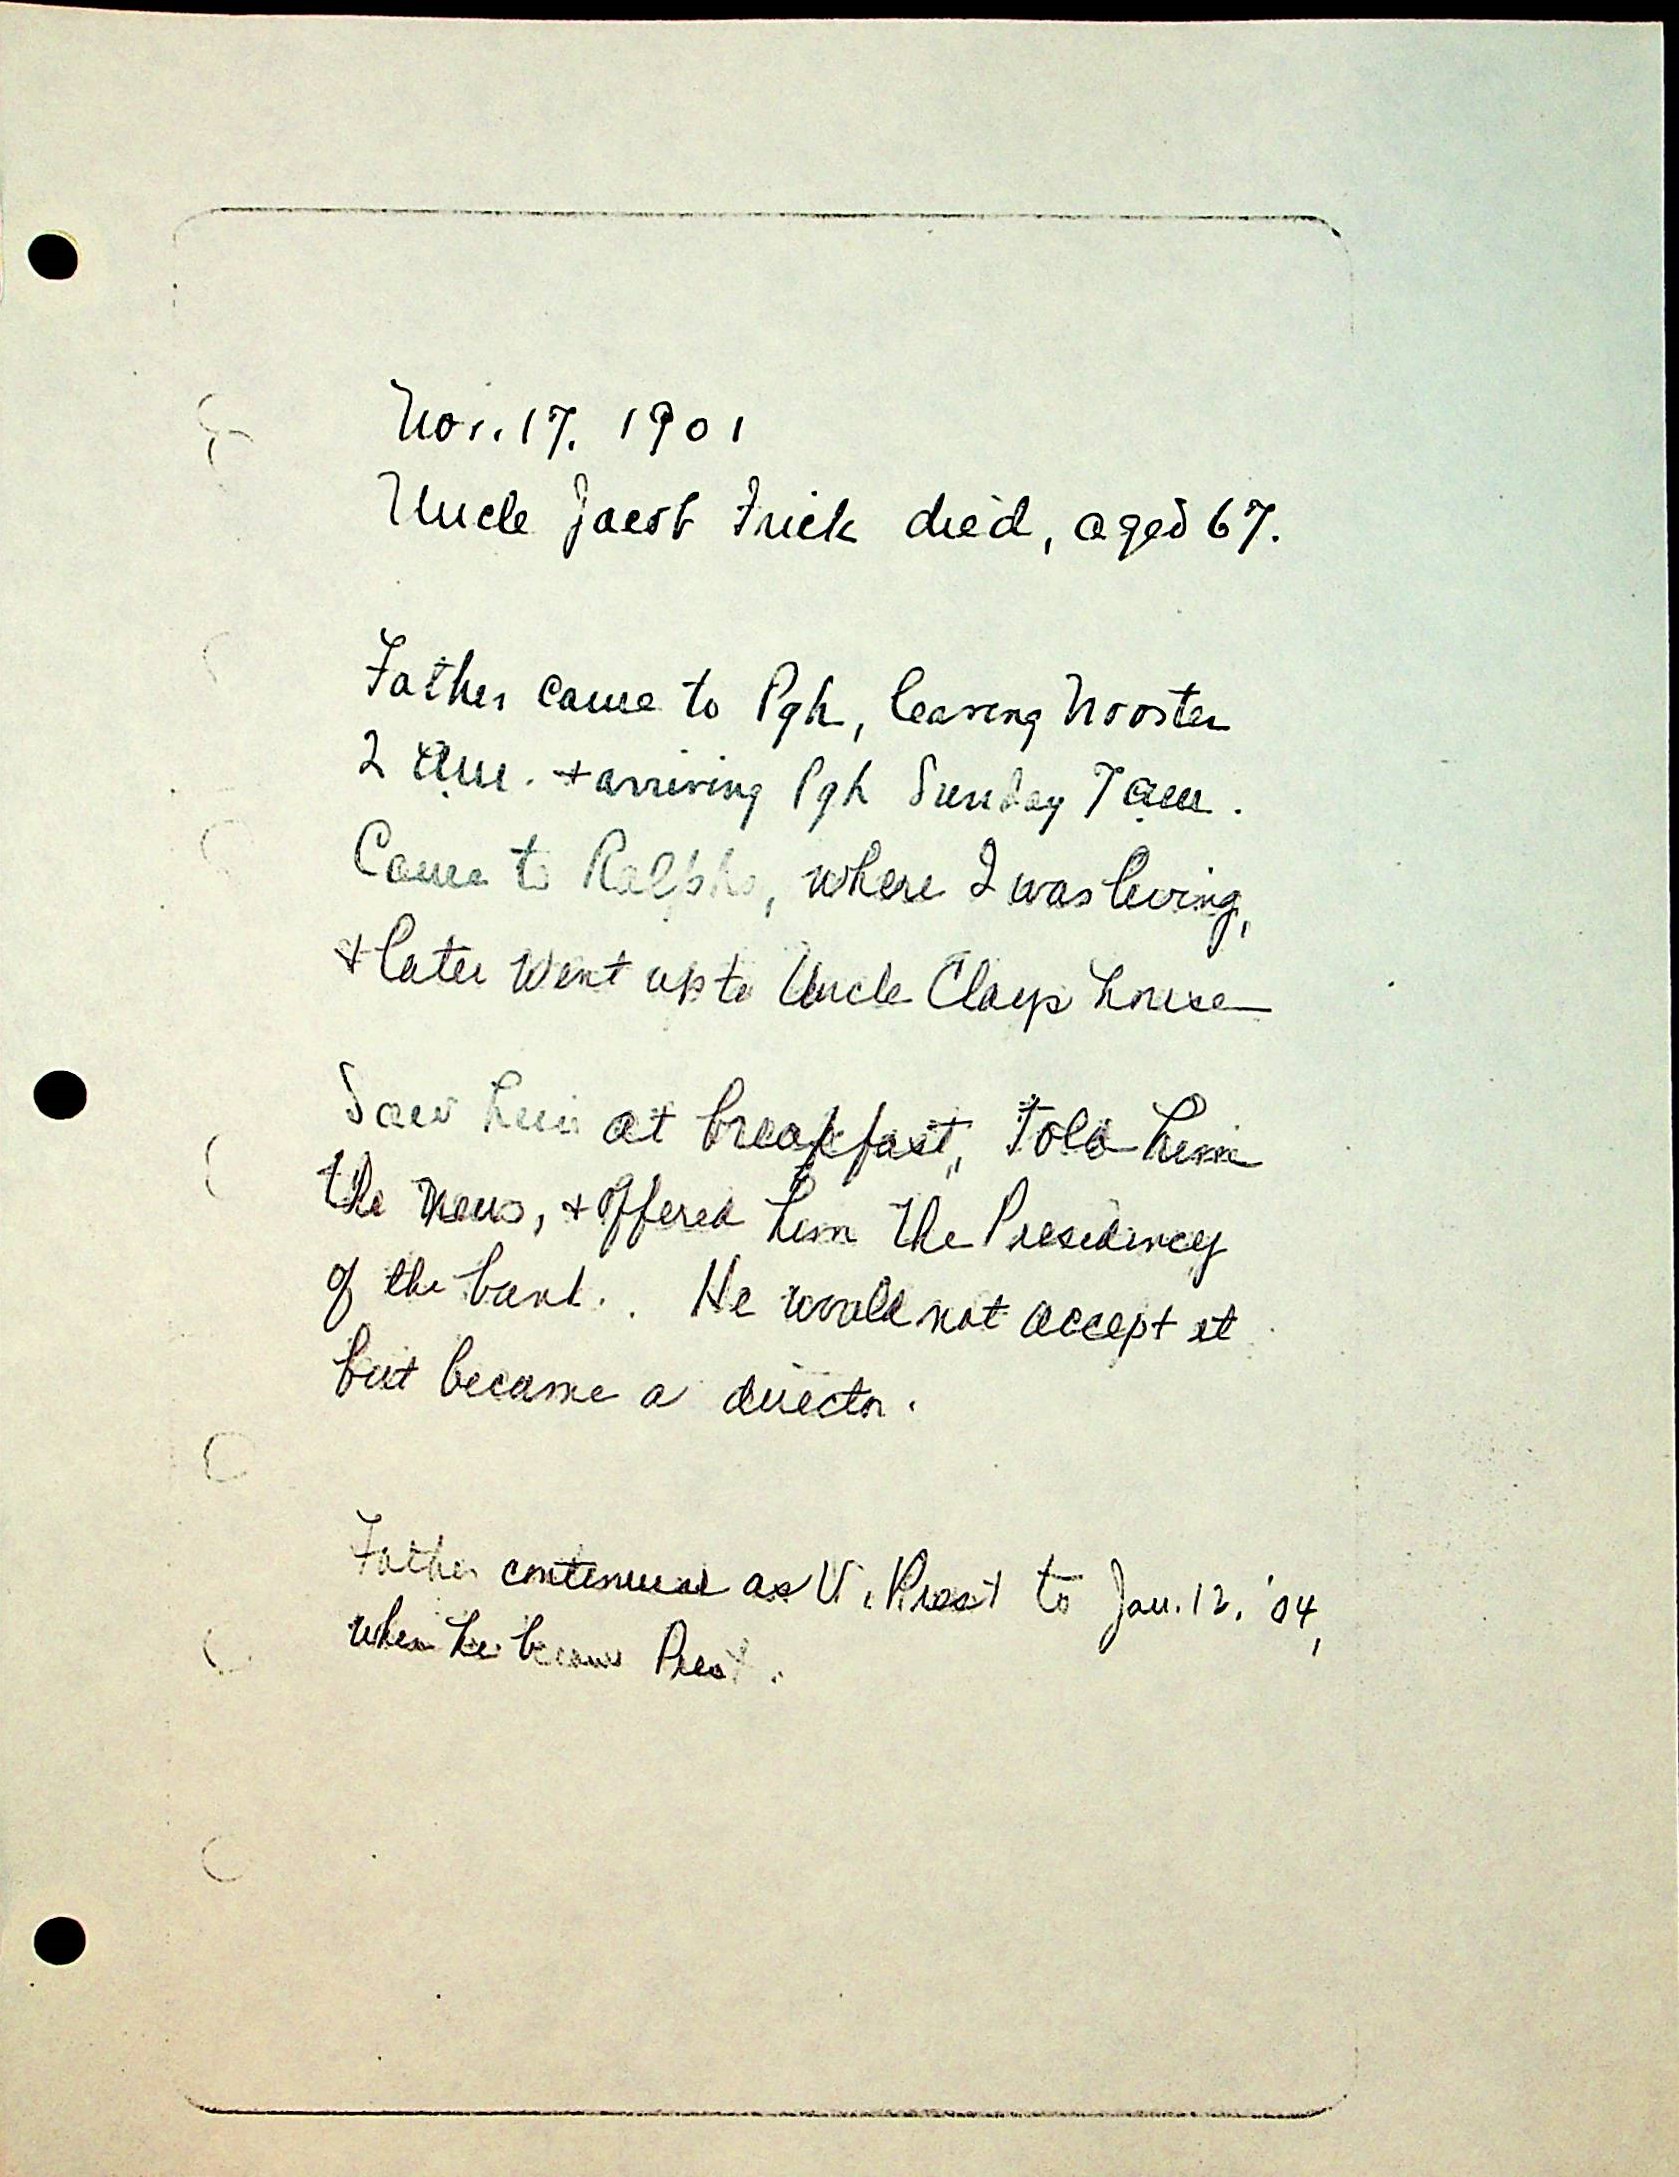 Nov. 17. 1901
Uncle Jacob Frick died, aged 67.
Father came to Pgh, leaving Wooster
2 am. + arriving Pgh Sunday 7 am.
Came to Ralphs, where I was living,
+ later went up to Uncle Clays house
Saw him at breakfast, told him
the news, + offered him the Presidency
of the bank. He would not accept it
but became a director.
Father continued as V. Prest to Jan. 12, '04,
when he became Prest.